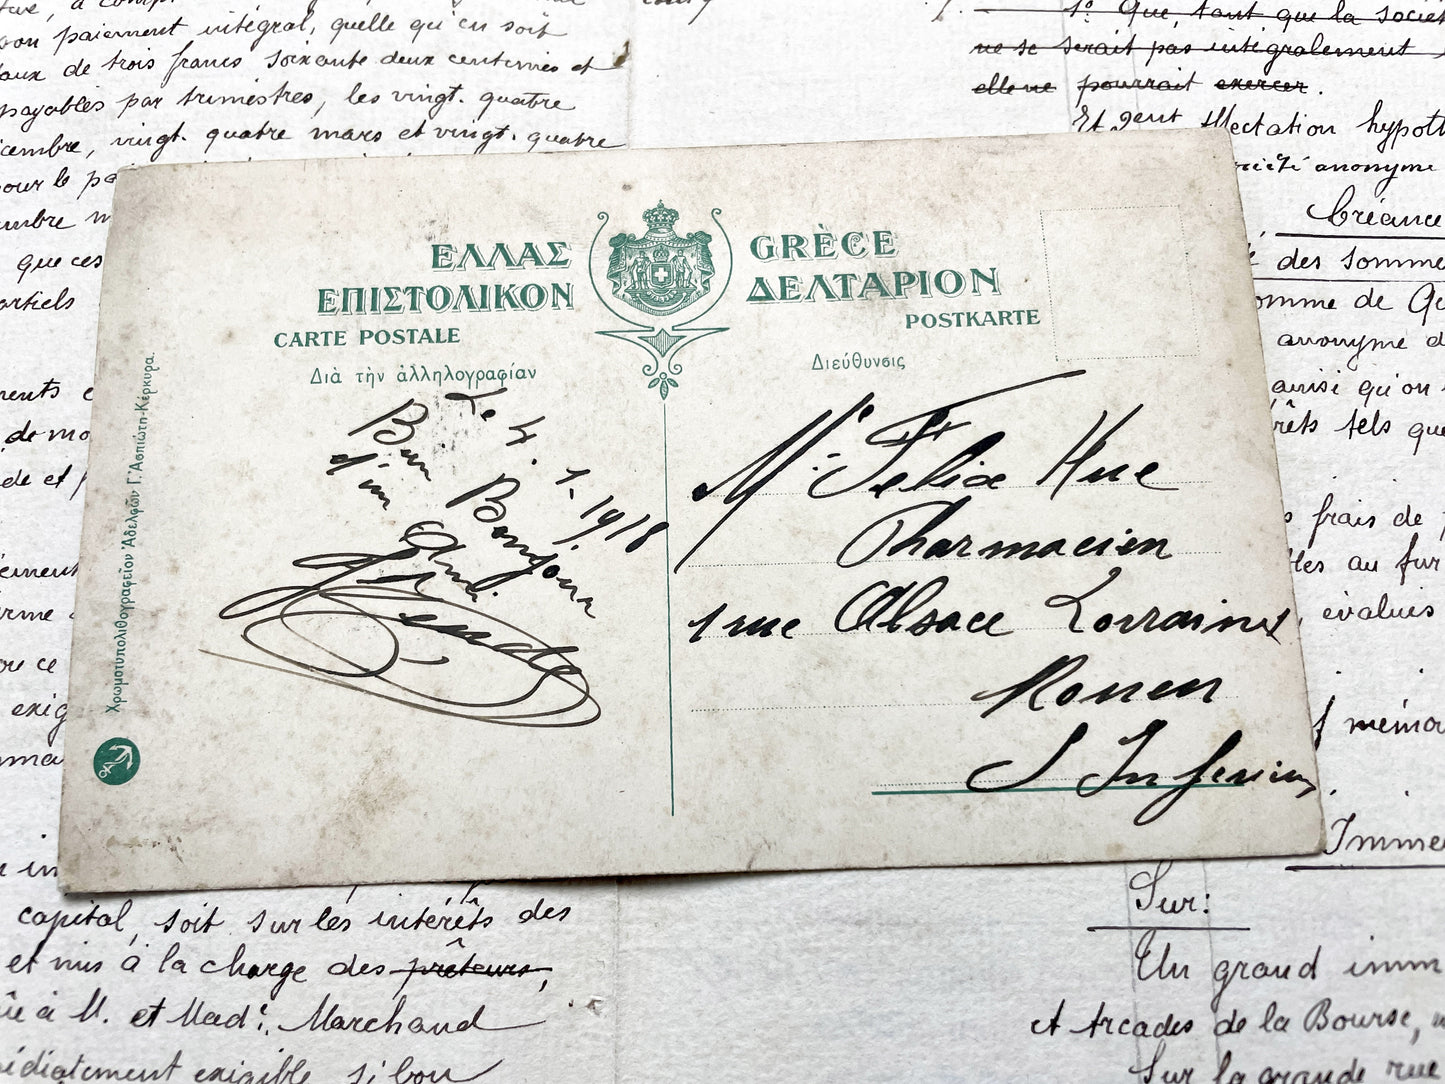 on paiement intégral, quelle qu'en soit
aux de trois francs soixante deux centimes et
payables par trimestres, les vingt-quatre
cembre, vingt-quatre mars et vingt-quatre
pour le
que ces
artiels
de mo
exig
1º. Que, tant que la Sociét
ne se serait pas intégralement
elle ne pourrait exercer.
Et 2ent Affectation hypoth
anonyme
Créance
des somme
omme de
anonyme d
ainsi qu'on
rêts tels que
frais de
les au fur
évalués
mémo
ΕΛΛΑΣ
ΕΠΙΣΤΟΛΙΚΟΝ
CARTE POSTALE
Διὰ τὴν ἀλληλογραφίαν
GRÈCE
ΔΕΛΤΑΡΙΟΝ
POSTKARTE
Διεύθυνσις
Χρωμοτυπολιθογραφεῖον Ἀδελφῶν Γ. Ἀσπιώτη-Κέρκυρα.
Le 4.1.1918
Bon Bonjour
d'un Ami.
Mr. Félix Hue
Pharmacien
1 rue Alsace Lorraine
Rouen
S Inférieure
capital, soit sur les intérêts des
et mis à la charge des prêteurs,
à M. et Mad. Marchand
édiatement exigible si bon
Imme
Sur:
Un grand imm
et Arcades de la Bourse,
Sur la grande rue